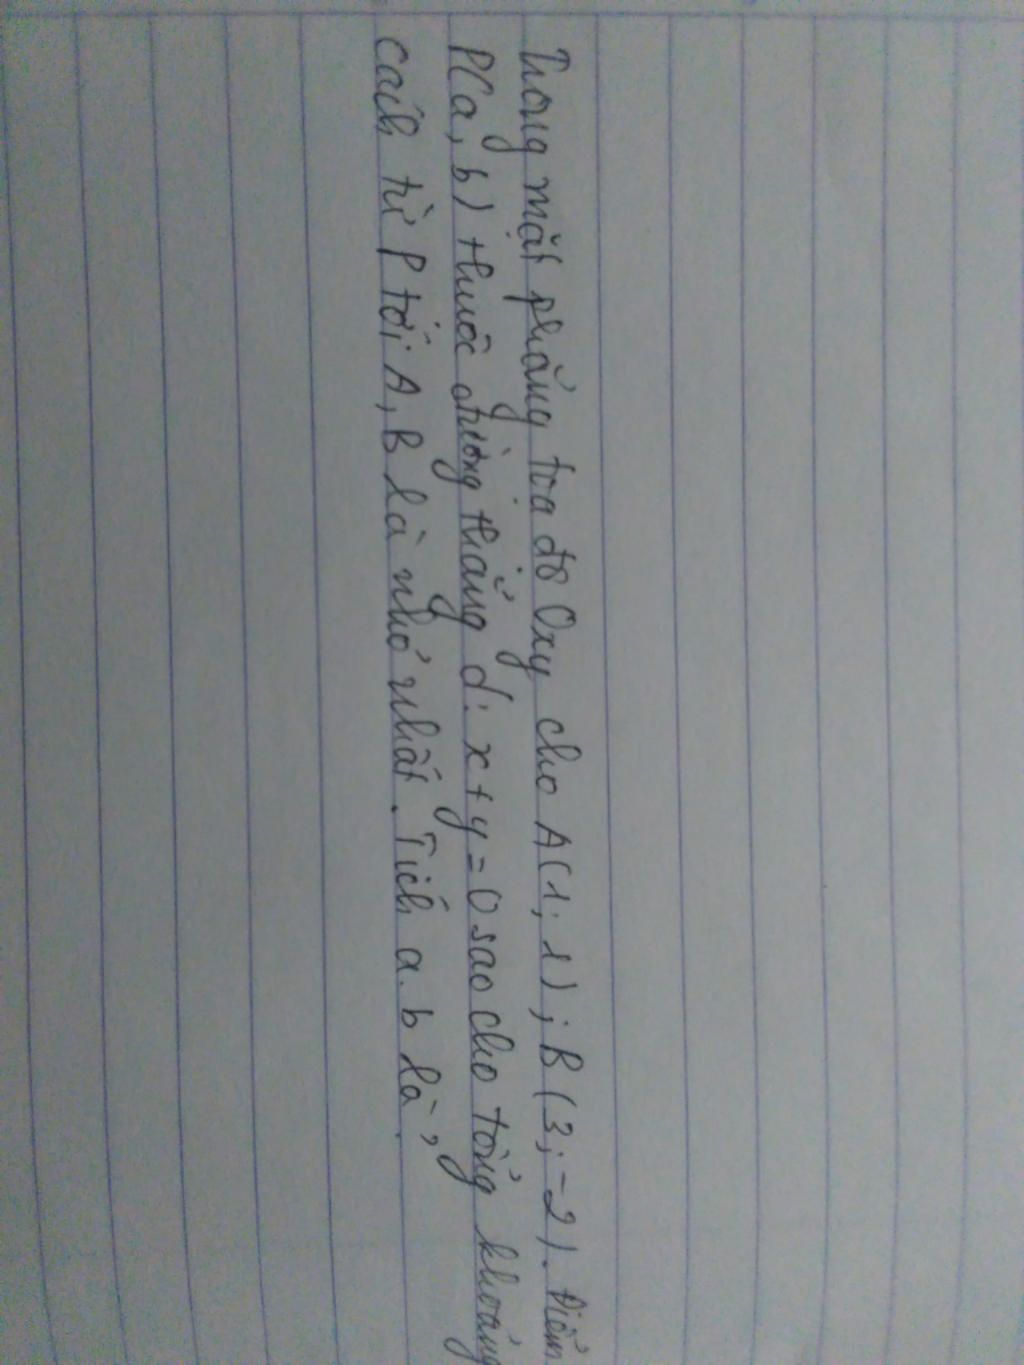 Trong mặt phẳng tọa độ Oxy cho A(1; 1); B(3; -2). Điểm
P(a, b) thuộc đường thẳng d: x+y=0 sao cho tổng khoảng
cách từ P tới A, B là nhỏ nhất. Tích a.b là,